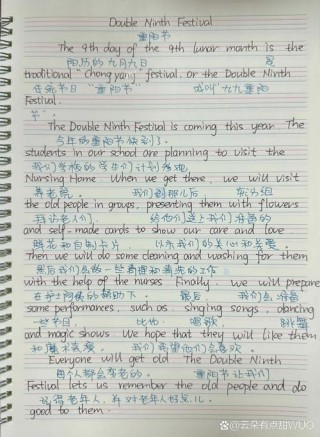 Double Ninth Festival
重阳节
The 9th day of the 9th lunar month is the
阳历的九月九日 是
traditional "chongyang" festival. or the Double Ninth
传统节日 "重阳节" 或叫"九九重阳
Festival.
节".
The Double Ninth Festival is coming this year. The
今年的重阳节快到了.
students in our school are planning to visit the
我们学校的学生们计划
Nursing Home. When we get there, we will visit
养老院. 我们到那儿后,
the old people in groups, presenting them with flowers
拜访老人们.
and self-made cards to show our care and love
鲜花和自制卡片 我们的关心和关爱.
Then we will do some cleaning and washing for them
然后我们会做一些 工作
with the help of the nurses. Finally, we will prepare
的帮助下. 最后, 我们会准备
some performances, such as singing songs, dancing
一些节目 比如 唱歌, 跳舞
and magic shows. We hope that they will like them
和魔术表演. 我们希望他们会喜欢.
Everyone will get old. The Double Ninth
每个人都会变老的. 重阳节让我们
Festival lets us remember the old people and do
记得老年人, 并对老年人好点儿.
good to them.
@云朵有点甜WUO